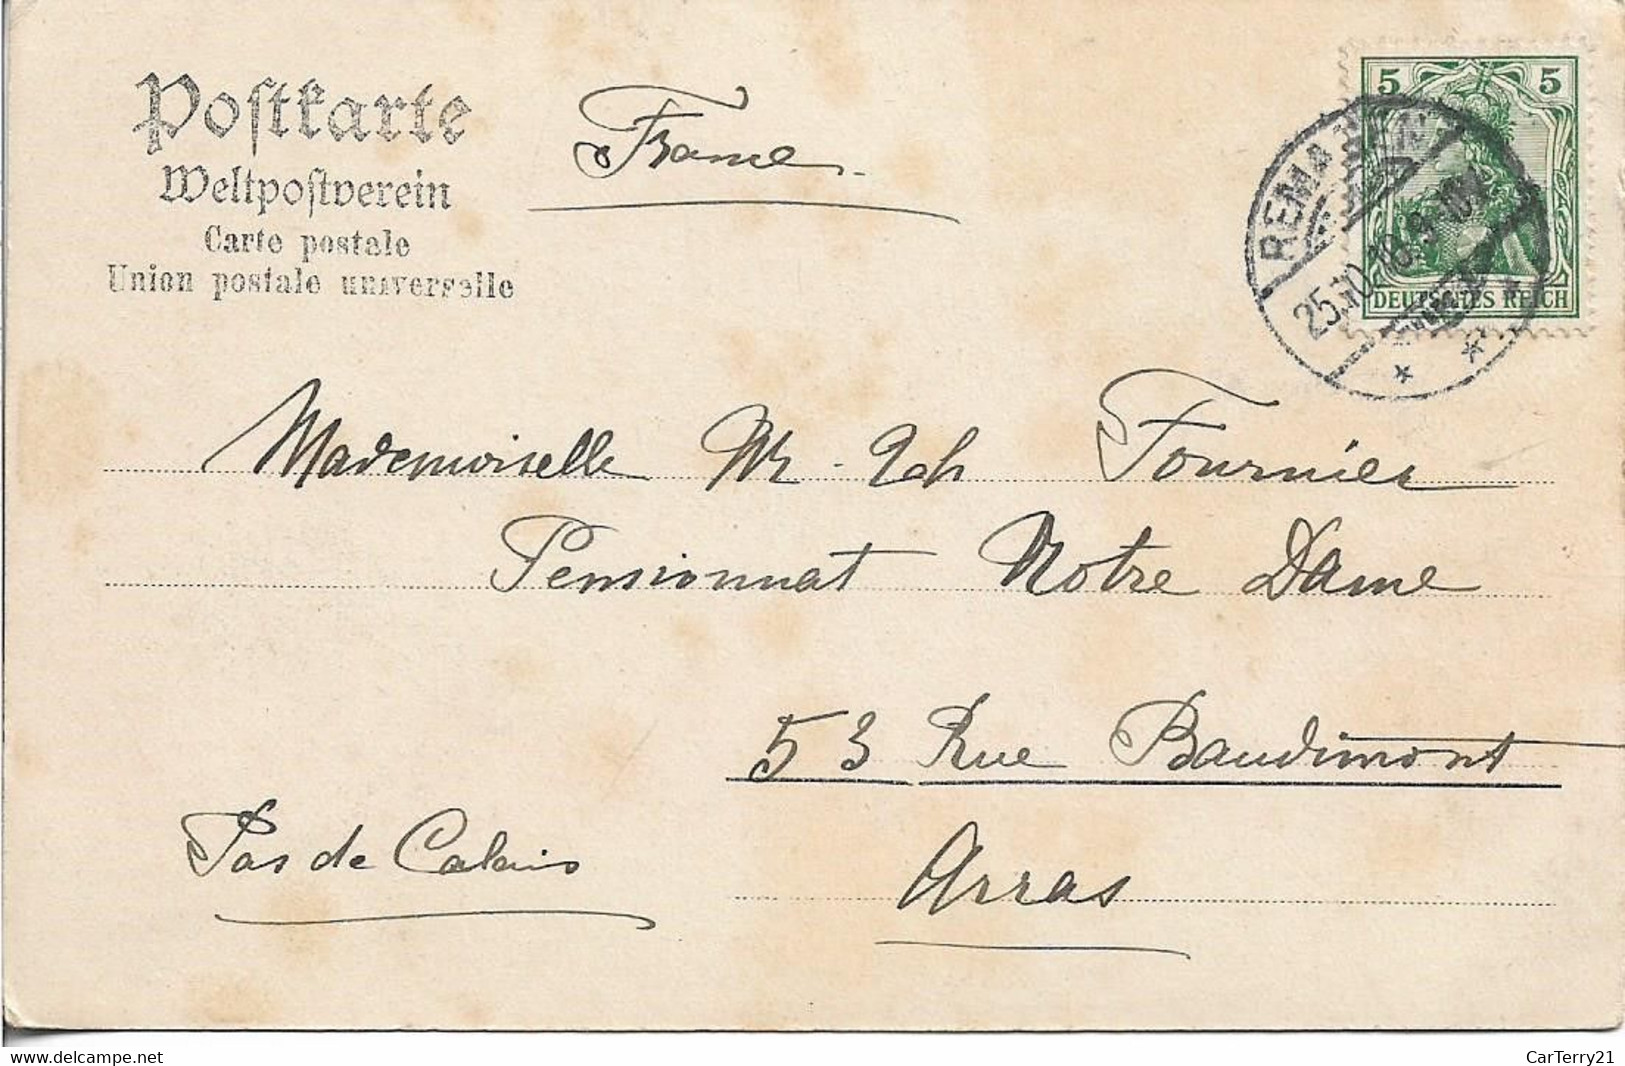 Postkarte
Weltpostverein
Carte postale
Union postale universelle
France
5 5
DEUTSCHES REICH
REMAGEN
25.10.
Mademoiselle M Fournier
Pensionnat Notre Dame
53 Rue Baudimont
Pas de Calais
Arras
delcampe.net
CarTerry21